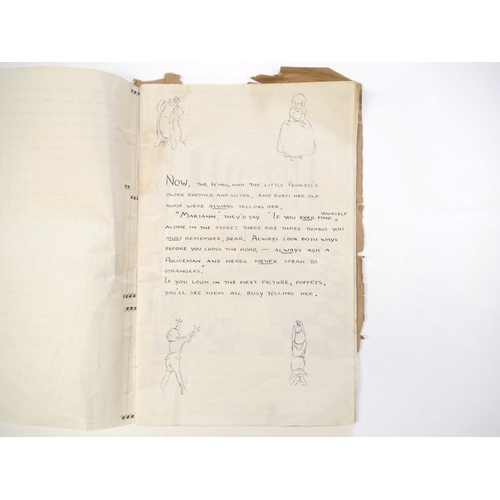 NOW, THE KING, AND THE LITTLE PRINCESS'S
OLDER BROTHER AND SISTER, AND EVEN HER OLD
NURSE WERE ALWAYS TELLING HER,
"MARIANN", THEY'D SAY "IF YOU EVER FIND YOURSELF
ALONE IN THE STREET THERE ARE THREE THINGS YOU
MUST REMEMBER, DEAR. ALWAYS LOOK BOTH WAYS
BEFORE YOU CROSS THE ROAD, — ALWAYS ASK A
POLICEMAN AND NEVER NEVER SPEAK TO
STRANGERS.
IF YOU LOOK IN THE NEXT PICTURE, POPPETS,
YOU'LL SEE THEM ALL BUSY TELLING HER.